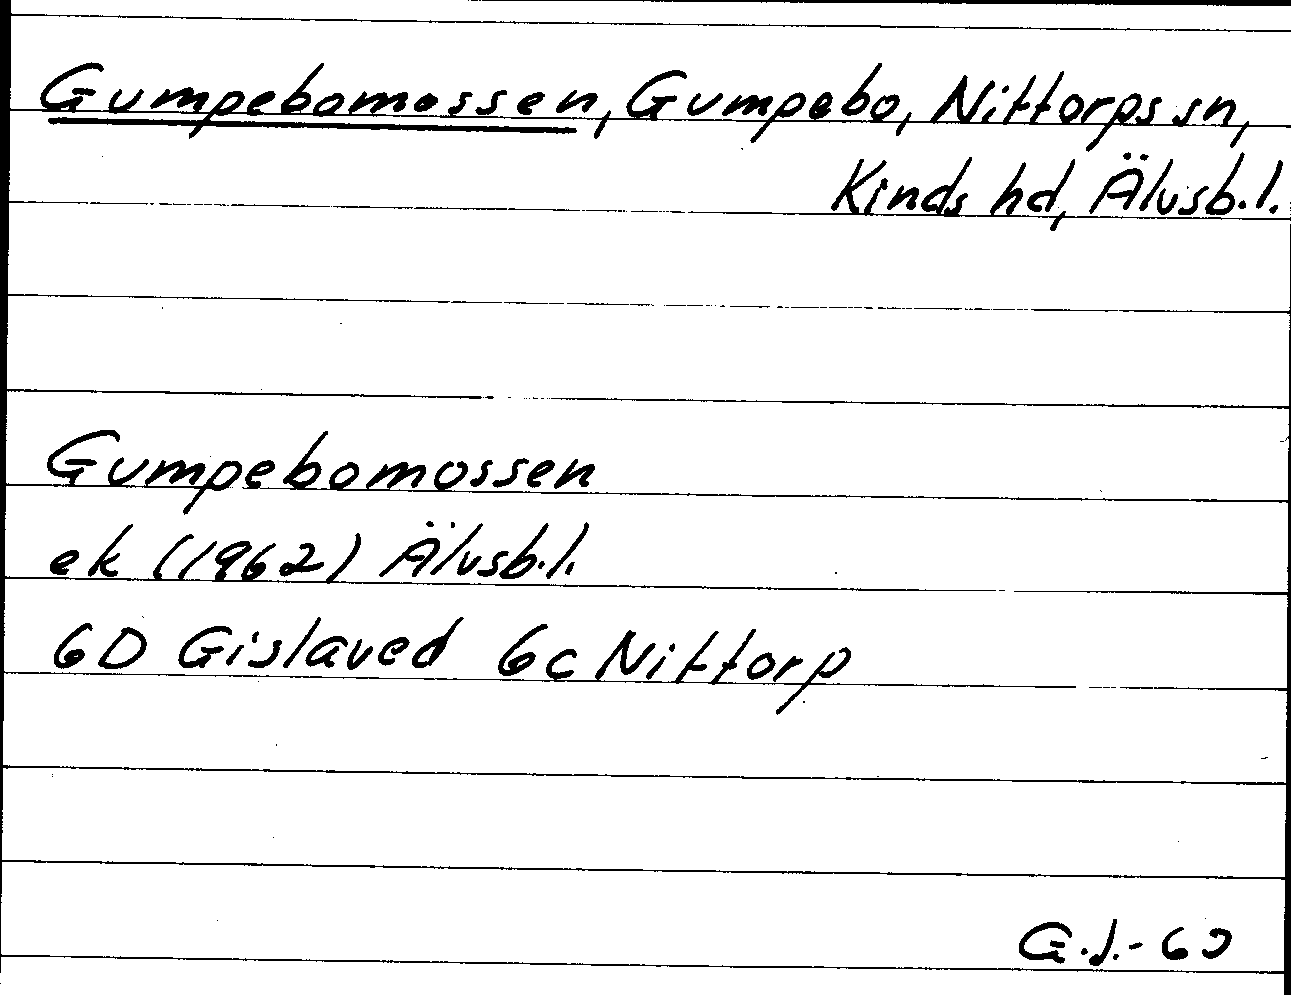 Gumpebomossen, Gumpebo, Nittorps sn,
Kinds hd, Älvsb.l.
Gumpebomossen
ek (1962) Älvsb.l.
6D Gislaved 6c Nittorp
G.J.-